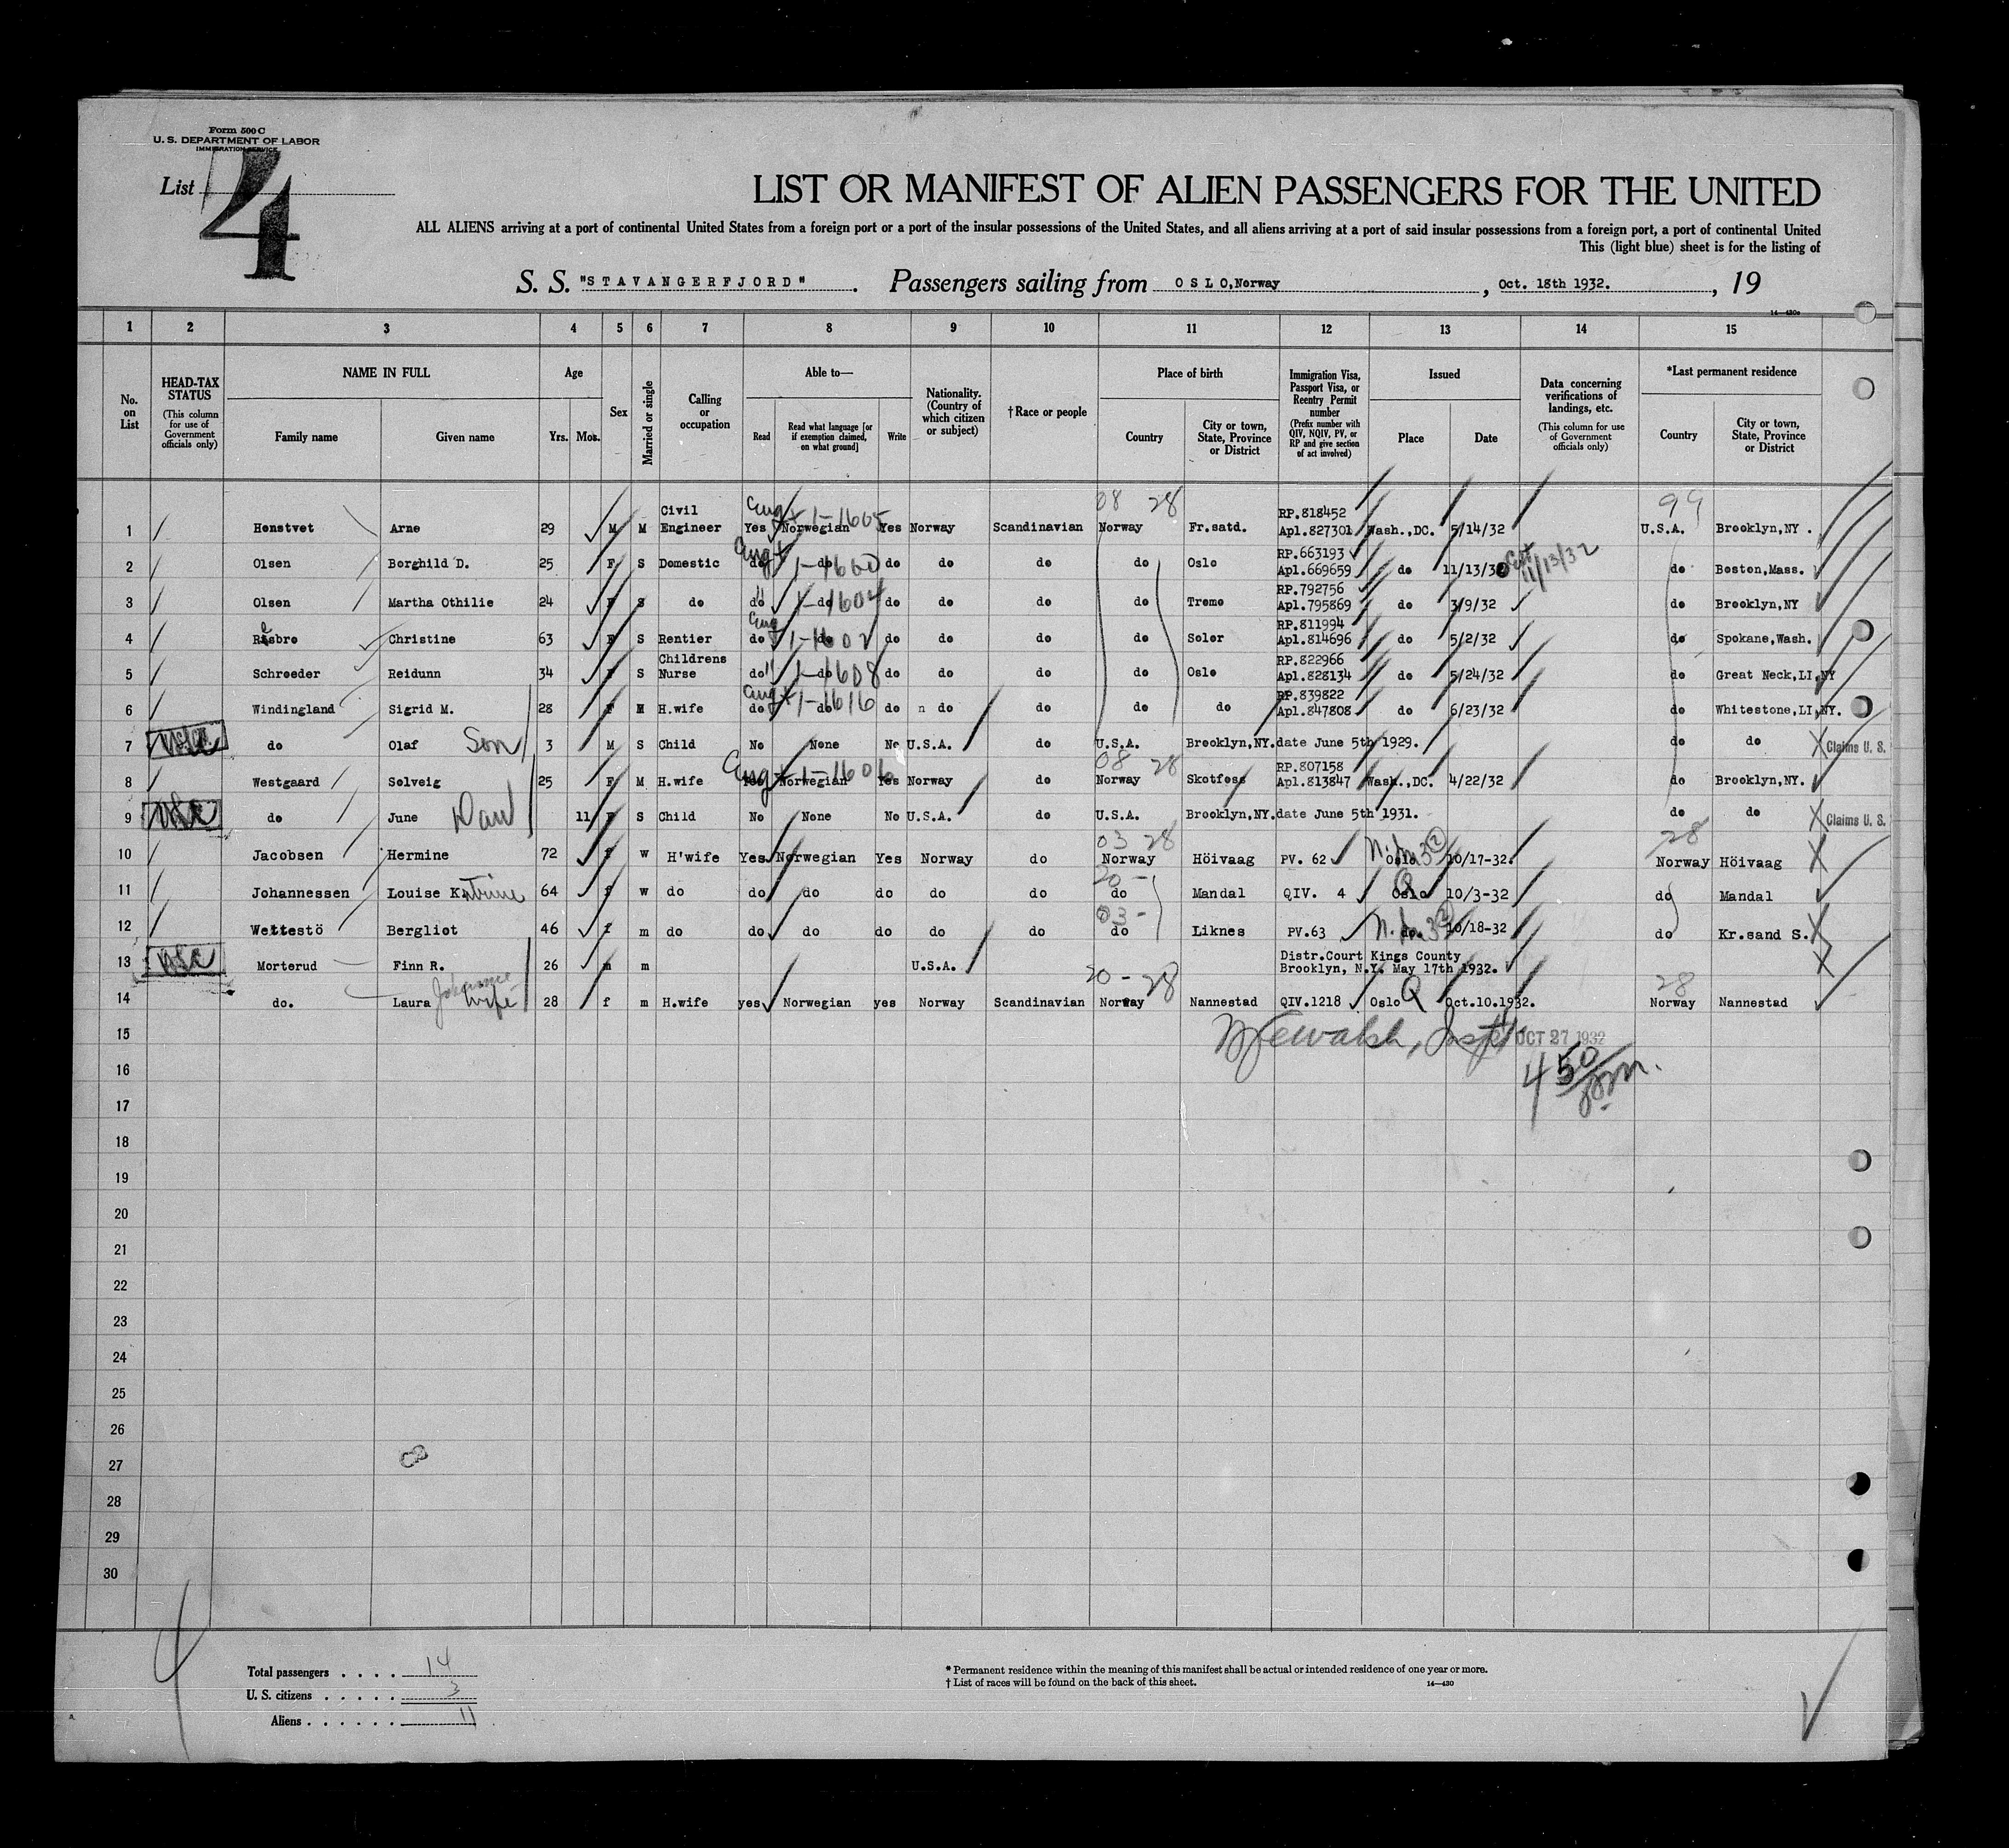 Form 500 C
U. S. DEPARTMENT OF LABOR
IMMIGRATION SERVICE
List 4
LIST OR MANIFEST OF ALIEN PASSENGERS FOR THE UNITED
ALL ALIENS arriving at a port of continental United States from a foreign port or a port of the insular possessions of the United States, and all aliens arriving at a port of said insular possessions from a foreign port, a port of continental United
This (light blue) sheet is for the listing of
S. S. "STAVANGERFJORD". Passengers sailing from OSLO,Norway, Oct. 18th 1932., 19
14—430a
1 2 3 4 5 6 7 8 9 10 11 12 13 14 15
No. on List
HEAD-TAX STATUS (This column for use of Government officials only)
NAME IN FULL Family name Given name
Age Yrs. Mos.
Sex
Married or single
Calling or occupation
Able to— Read Read what language [or if exemption claimed, on what ground] Write
Nationality. (Country of which citizen or subject)
† Race or people
Place of birth Country City or town, State, Province or District
Immigration Visa, Passport Visa, or Reentry Permit number (Prefix number with QIV, NQIV, PV, or RP and give section of act involved)
Issued Place Date
Data concerning verifications of landings, etc. (This column for use of Government officials only)
*Last permanent residence Country City or town, State, Province or District
08 28 99
1 Henstvet Arne 29 M M Civil Engineer Yes Eng + 1-1605 Norwegian Yes Norway Scandinavian Norway Fr.satd. RP.818452 Apl.827301 Wash.,DC. 5/14/32 U.S.A. Brooklyn,NY.
2 Olsen Borghild D. 25 F S Domestic do Eng + 1-1660 do do do do do Oslo RP.663193 Apl.669659 do 11/13/32 Ext 11/13/32 do Boston,Mass.
3 Olsen Martha Othilie 24 F S do do " 1-1604 do do do do do Tromo RP.792756 Apl.795869 do 3/9/32 do Brooklyn,NY
4 Risbro Christine 63 F S Rentier do Eng 1-1602 do do do do do Solor RP.811994 Apl.814696 do 5/2/32 do Spokane,Wash.
5 Schroeder Reidunn 34 F S Childrens Nurse do " 1-1608 do do do do do Oslo RP.822966 Apl.828134 do 5/24/32 do Great Neck,LI,NY
6 Windingland Sigrid M. 28 F M H.wife do Eng + 1-1616 do do n do do do do RP.839822 Apl.847808 do 6/23/32 do Whitestone,LI,NY.
7 USC do Olaf Son 3 M S Child No None No U.S.A. do U.S.A. Brooklyn,NY.date June 5th 1929. do do X Claims U. S.
08 28
8 Westgaard Solveig 25 F M H.wife Yes Eng + 1-1606 Norwegian Yes Norway do Norway Skotfoss RP.807158 Apl.813847 Wash.,DC. 4/22/32 do Brooklyn,NY.
9 USC do June Dau 11 F S Child No None No U.S.A. do U.S.A. Brooklyn,NY.date June 5th 1931. do do X Claims U. S.
03 28 28
10 Jacobsen Hermine 72 f w H'wife Yes Norwegian Yes Norway do Norway Höivaag PV. 62 Oslo 10/17-32. Norway Höivaag X
20 -
11 Johannessen Louise Katrine 64 f w do do do do do do do Mandal QIV. 4 Oslo Q 10/3-32 do Mandal
03 -
12 Wettestö Bergliot 46 f m do do do do do do do Liknes PV.63 do. 10/18-32 do Kr.sand S. X
13 USC Morterud Finn R. 26 m m U.S.A. Distr.Court Kings County Brooklyn, N.Y. May 17th 1932. X
20 - 28 28
14 do. Laura Johanne wife 28 f m H.wife yes Norwegian yes Norway Scandinavian Norway Nannestad QIV.1218 Oslo Q Oct.10.1932. Norway Nannestad
15 Walsh, Insp OCT 27 1932
16 4 50 pm.
17
18
19
20
21
22
23
24
25
26
27
28
29
30
4
Total passengers . . . . 14
U. S. citizens . . . . . 3
Aliens . . . . . . 11
* Permanent residence within the meaning of this manifest shall be actual or intended residence of one year or more.
† List of races will be found on the back of this sheet.
14—430